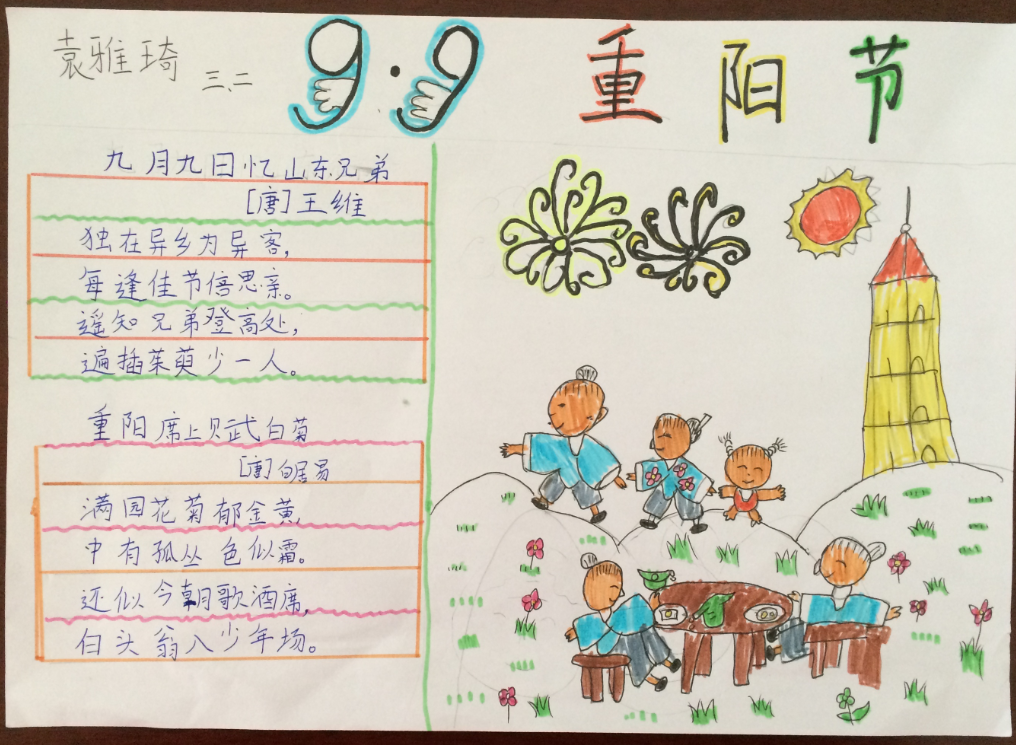 袁雅琦 三、二
9·9 重阳节
九月九日忆山东兄弟
[唐]王维
独在异乡为异客,
每逢佳节倍思亲。
遥知兄弟登高处,
遍插茱萸少一人。
重阳席上贝武白菊
[唐]白居易
满园花菊郁金黄,
中有孤丛色似霜。
还似今朝歌酒席,
白头翁入少年场。